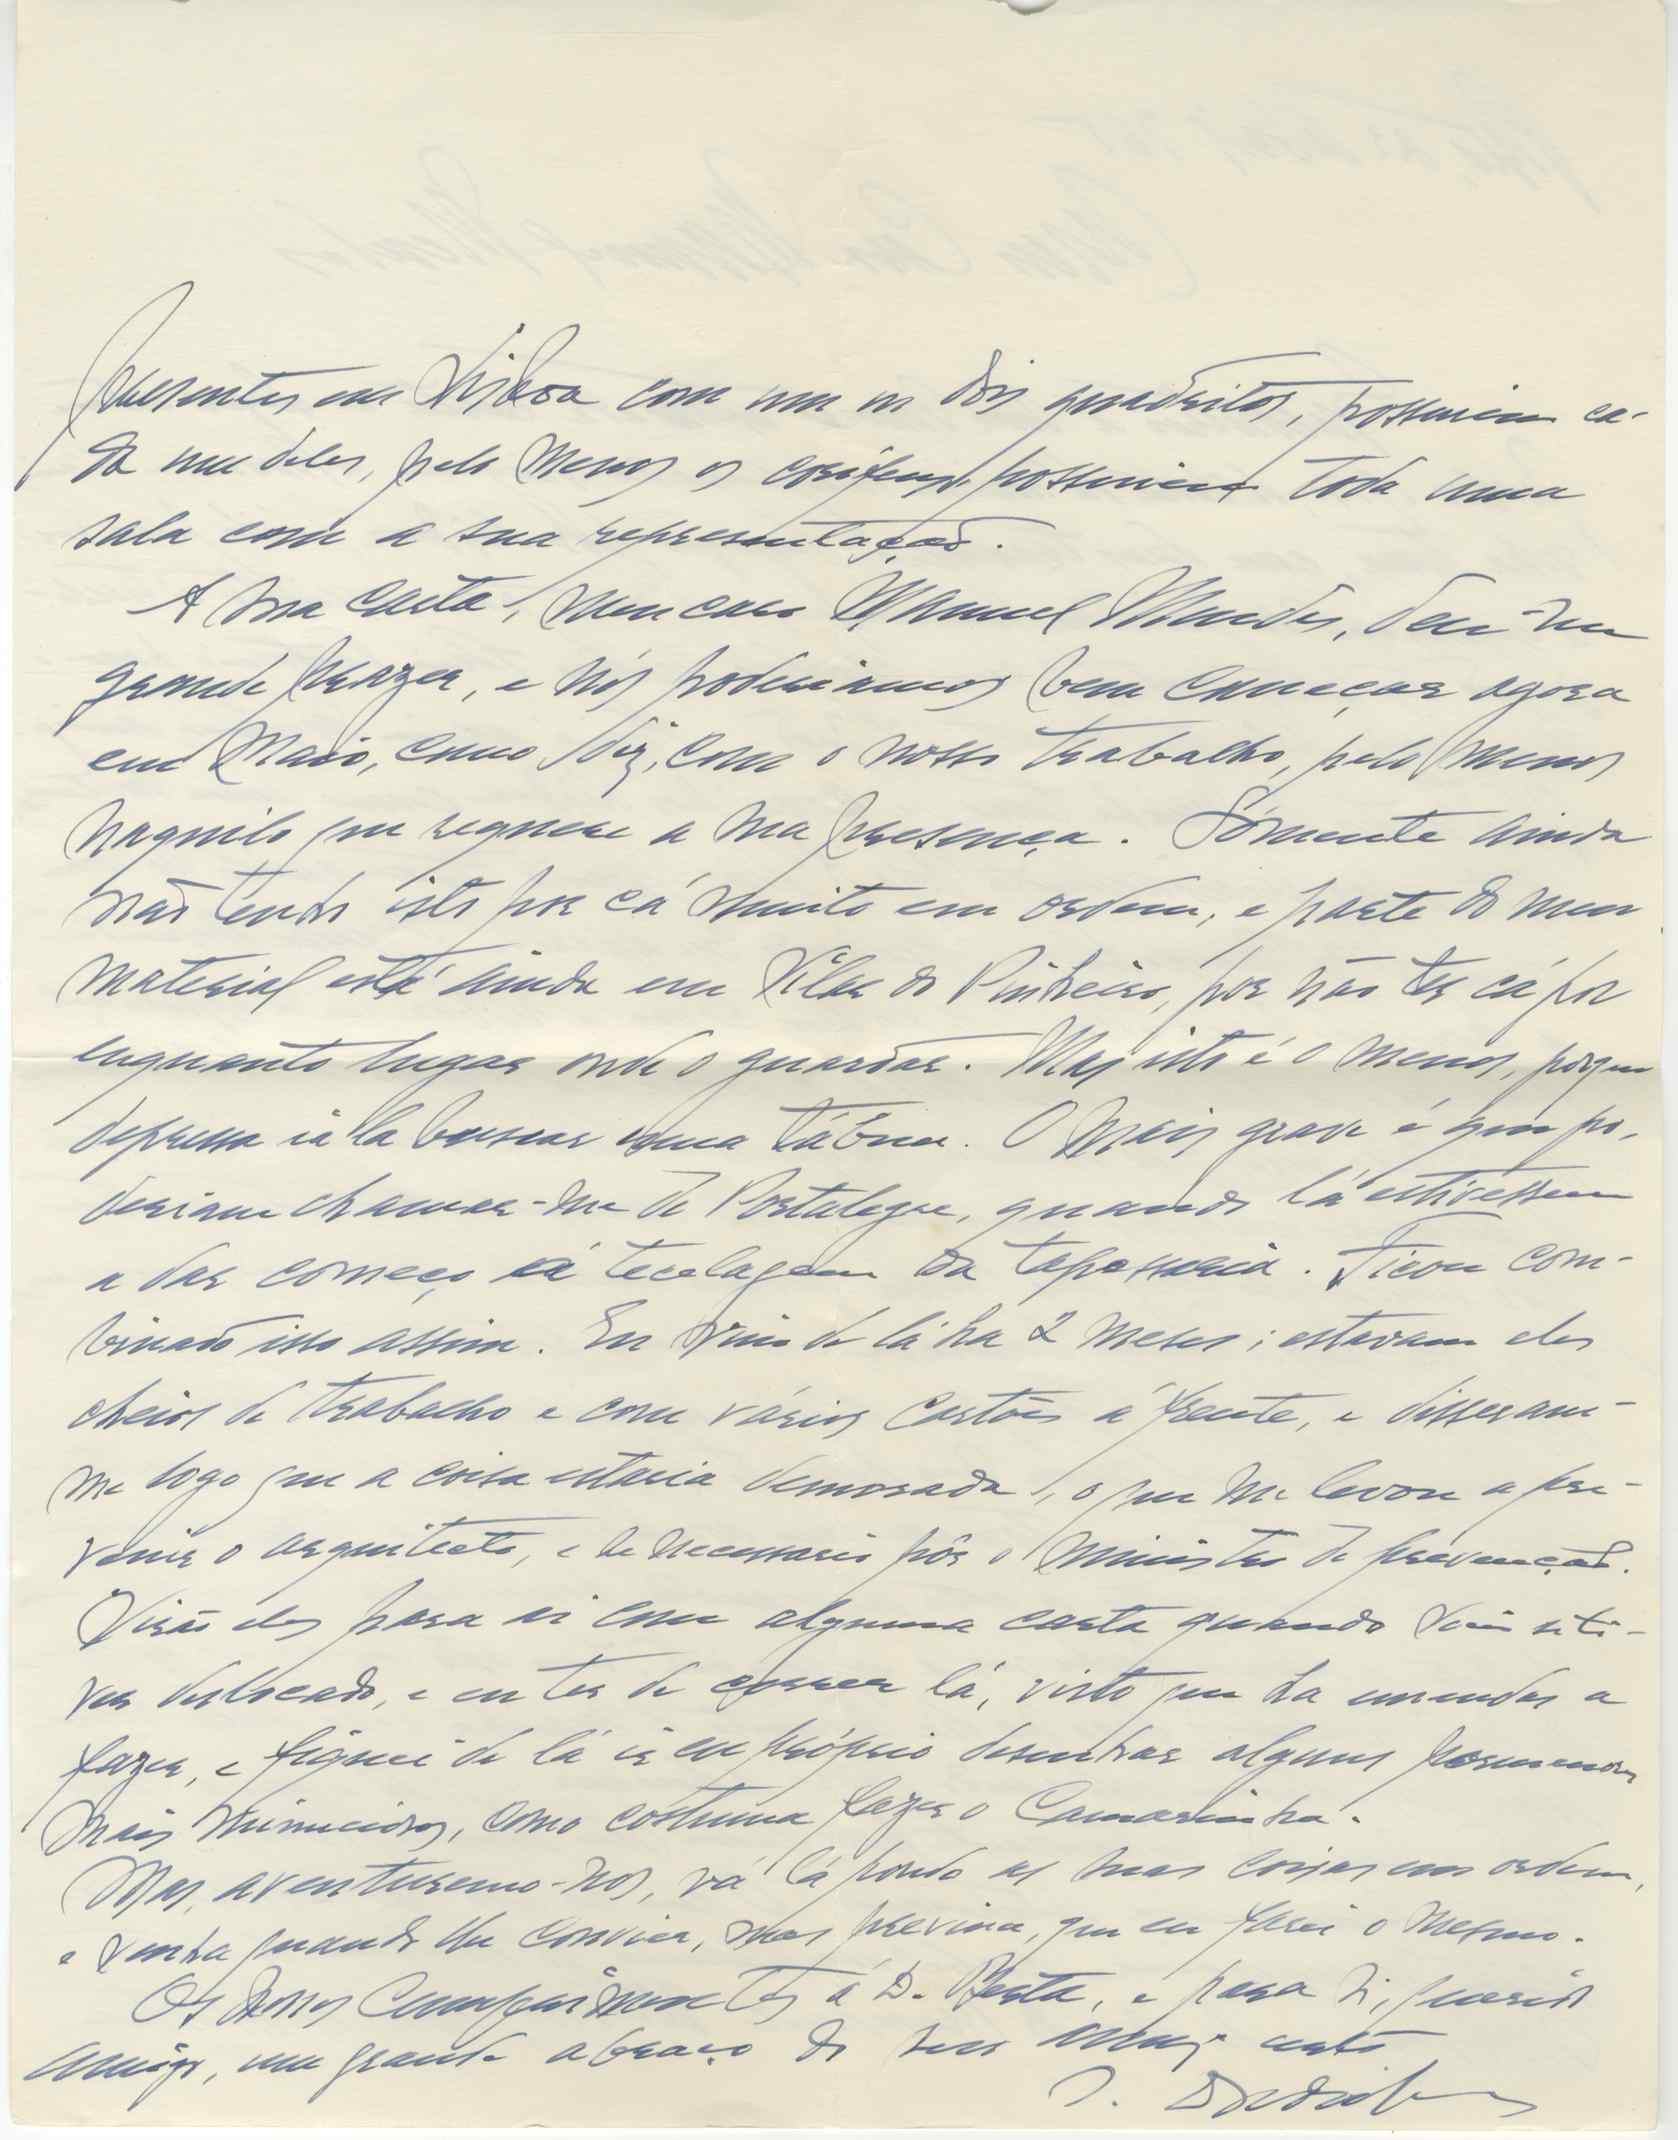 presentes em Lisboa com um ou dois quadritos, possuirem ca-
da um deles, pelo menos os corifeus, possuirem toda uma
sala com a sua representação.
A sua carta, meu caro Manuel Mendes, deu-me
grande prazer, e nós poderiamos bem começar agora
em Maio, como diz, com o nosso trabalho, pelo menos
naquilo que requere a sua presença. Sómente ainda
não tenho isto por cá muito em ordem, e parte do meu
material está ainda em Vilar do Pinheiro, por não ter cá por
enquanto lugar onde o guardar. Mas isto é o menos, porque
depressa ia lá buscar uma tábua. O mais grave é que po-
deriam chamar-me de Portalegre, quando lá estivessem
a dar começo á tecelagem da tapessaria. Ficou com-
binado isso assim. Eu vim de lá ha 2 meses; estavam eles
cheios de trabalho e com vários cartões á frente, e disseram-
me logo que a coisa estaria demorada, o que me levou a pre-
venir o arquitecto, e se necessario pôr o ministro de prevenção.
Virão eles para aí com alguma carta quando você se ti-
ver deslocado, e eu ter de correr lá, visto que ha emendas a
fazer, e fiquei de lá ir eu próprio desenhar alguns pormenores
mais minuciosos, como costuma fazer o Camarinha.
Mas, aventuremo-nos, vá lá pondo as suas coisas em ordem,
e venha quando lhe convier, mas previna, que eu farei o mesmo.
Os nossos cumprimentos á D. Berta, e para si, querido
amigo, um grande abraço do seu amigo certo